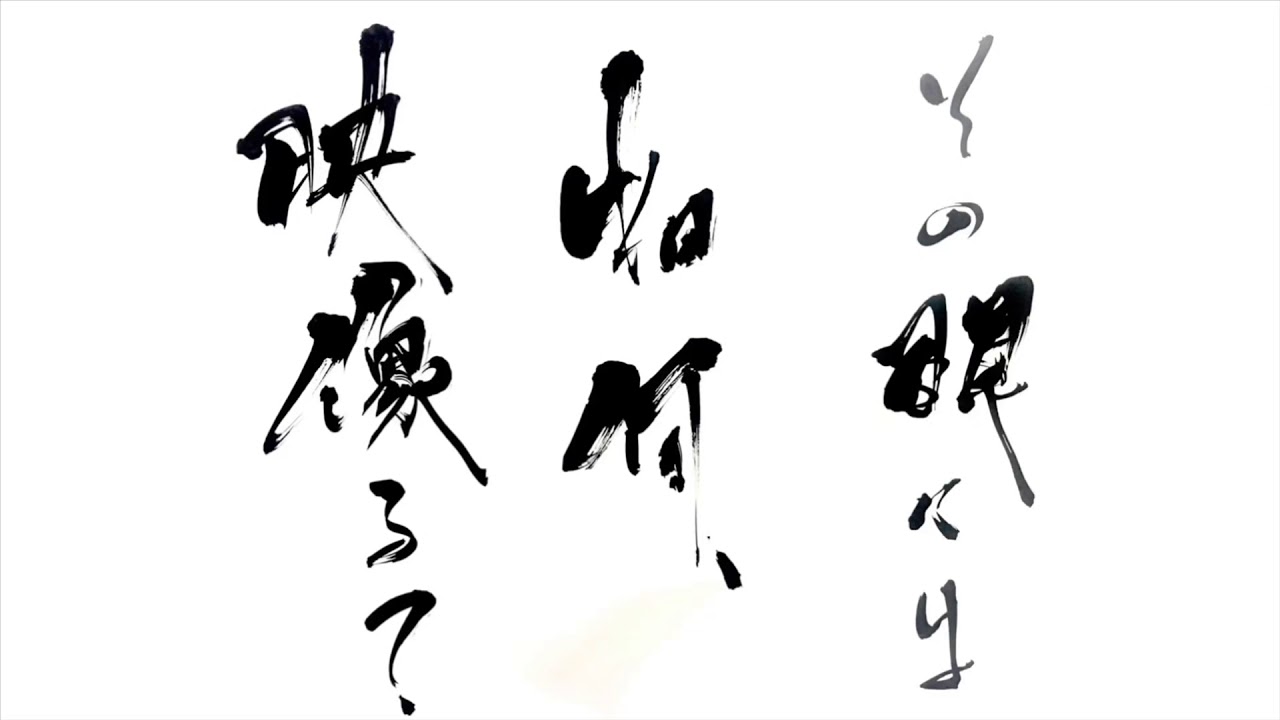 その眼には
如何、
映像る？